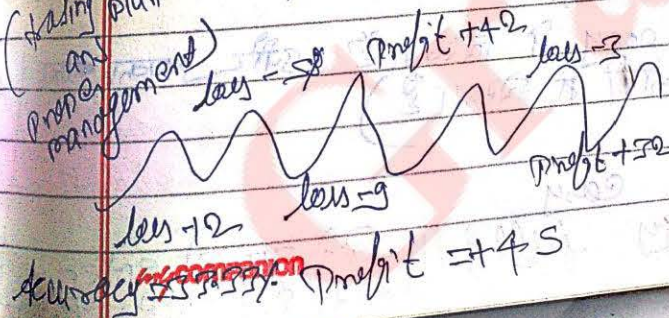 (trading plan
and
proper
management)
loss -5
Profit +42
loss -3
loss -12
loss -9
Profit +32
Accuracy = 33.33% Profit = +45